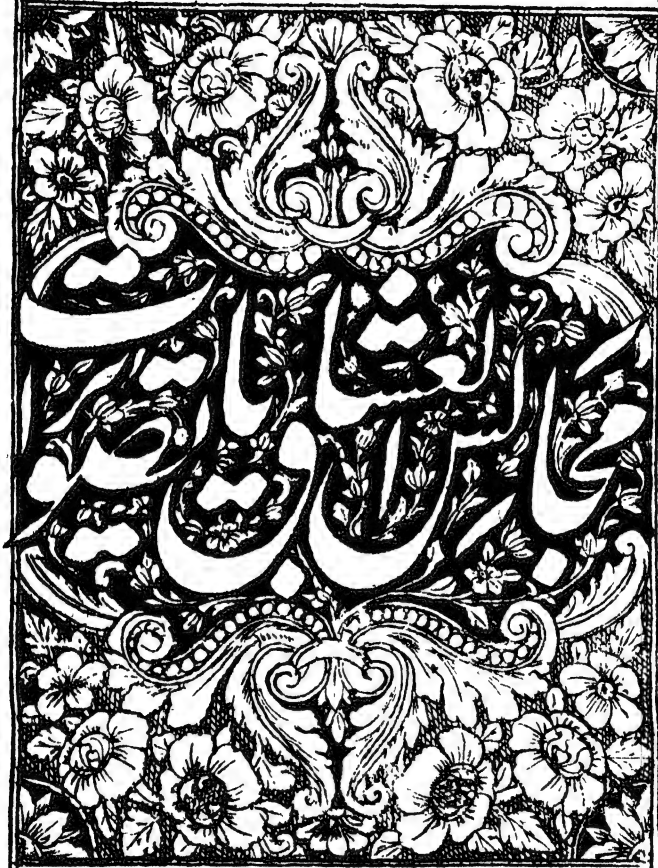 مجالس العشاق باتصویرات